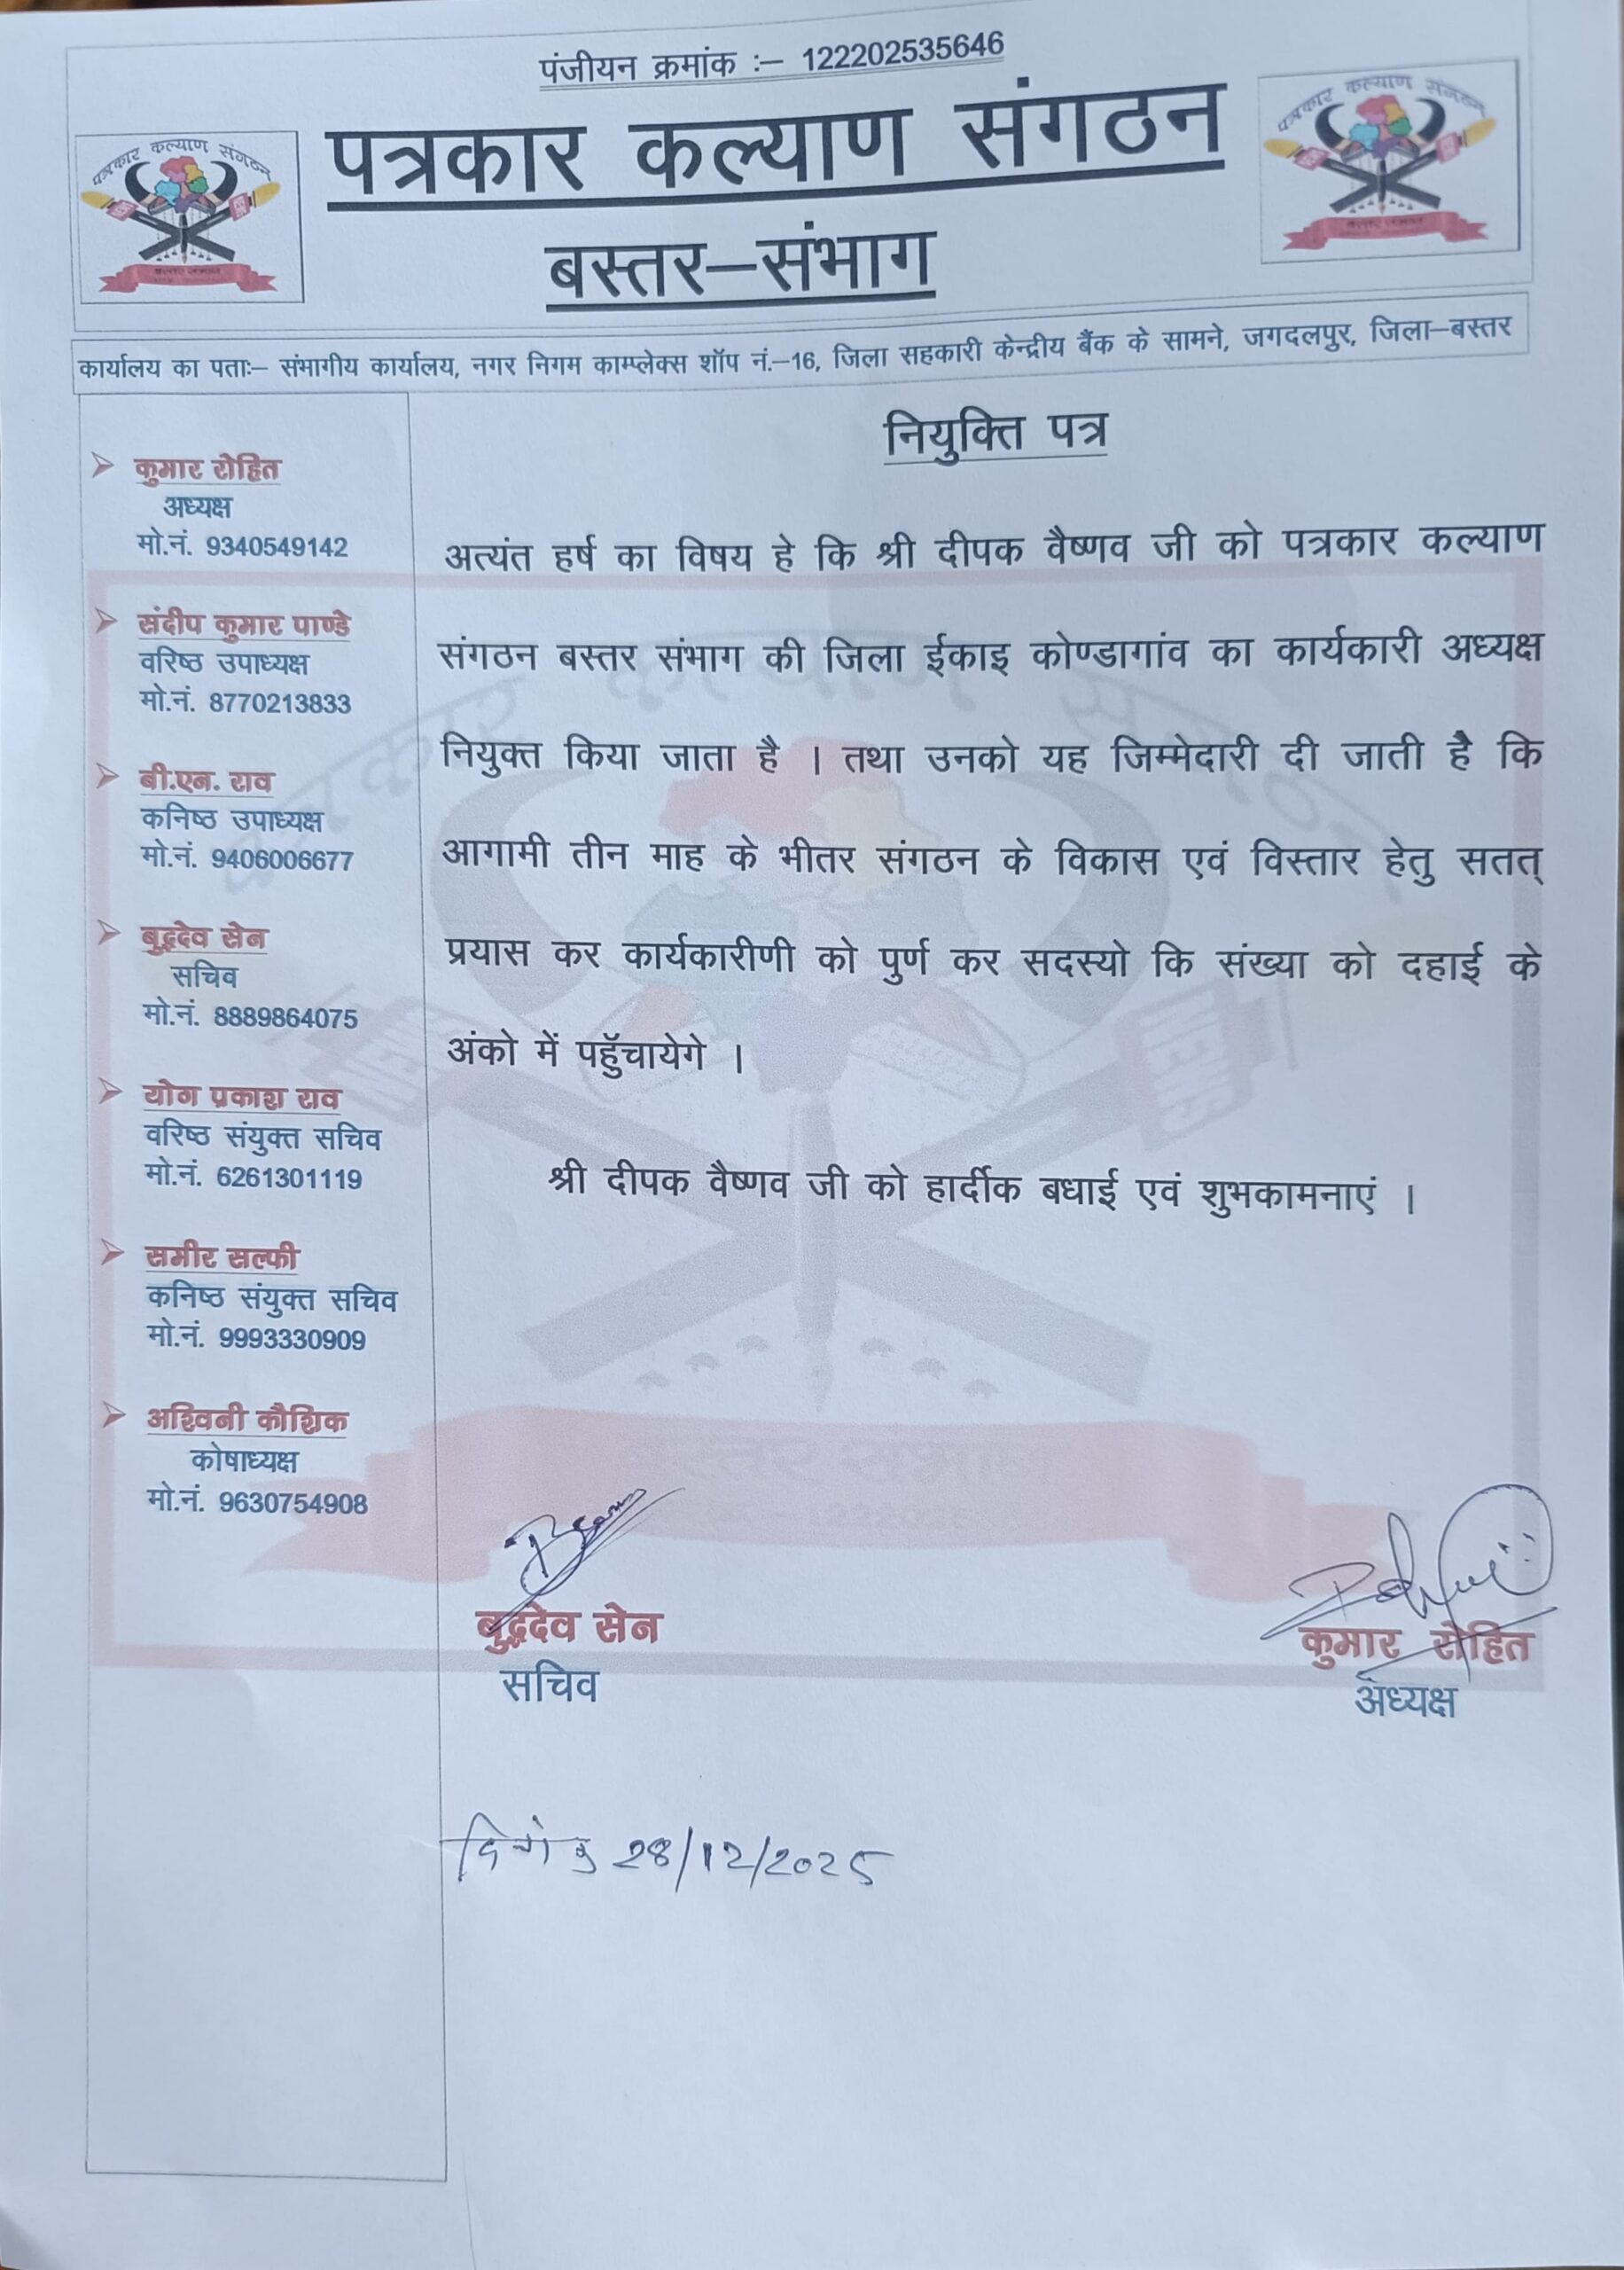 पंजीयन क्रमांक :– 122202535646
पत्रकार कल्याण संगठन
पत्रकार कल्याण संगठन
पत्रकार कल्याण संगठन
बस्तर–संभाग
कार्यालय का पताः– संभागीय कार्यालय, नगर निगम काम्प्लेक्स शॉप नं.–16, जिला सहकारी केन्द्रीय बैंक के सामने, जगदलपुर, जिला–बस्तर
कुमार रोहित
अध्यक्ष
मो.नं. 9340549142
संदीप कुमार पाण्डे
वरिष्ठ उपाध्यक्ष
मो.नं. 8770213833
बी.एन. राव
कनिष्ठ उपाध्यक्ष
मो.नं. 9406006677
बुद्धदेव सेन
सचिव
मो.नं. 8889864075
योग प्रकाश राव
वरिष्ठ संयुक्त सचिव
मो.नं. 6261301119
समीर सल्फी
कनिष्ठ संयुक्त सचिव
मो.नं. 9993330909
अश्विनी कौशिक
कोषाध्यक्ष
मो.नं. 9630754908
नियुक्ति पत्र
अत्यंत हर्ष का विषय हे कि श्री दीपक वैष्णव जी को पत्रकार कल्याण
संगठन बस्तर संभाग की जिला ईकाइ कोण्डागांव का कार्यकारी अध्यक्ष
नियुक्त किया जाता है । तथा उनको यह जिम्मेदारी दी जाती है कि
आगामी तीन माह के भीतर संगठन के विकास एवं विस्तार हेतु सतत्
प्रयास कर कार्यकारीणी को पुर्ण कर सदस्यो कि संख्या को दहाई के
अंको में पहुॅचायेगे ।
श्री दीपक वैष्णव जी को हार्दीक बधाई एवं शुभकामनाएं ।
पत्रकार कल्याण संगठन
NEWS
NEWS
बुद्धदेव सेन
सचिव
कुमार रोहित
अध्यक्ष
दिनांक 28/12/2025